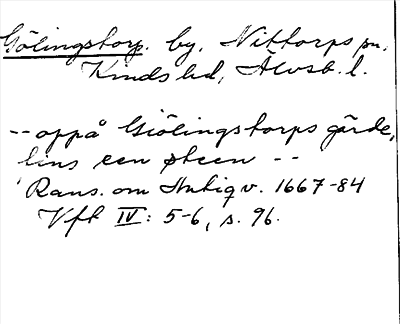 Gölingstorp. by, Nittorps sn,
Kinds hd, Älvsb. l.
-- oppå Giölingstorps gärde,
fins een steen --
Rans. om Antiqv. 1667-84
Vfk IV: 5-6, s. 96.